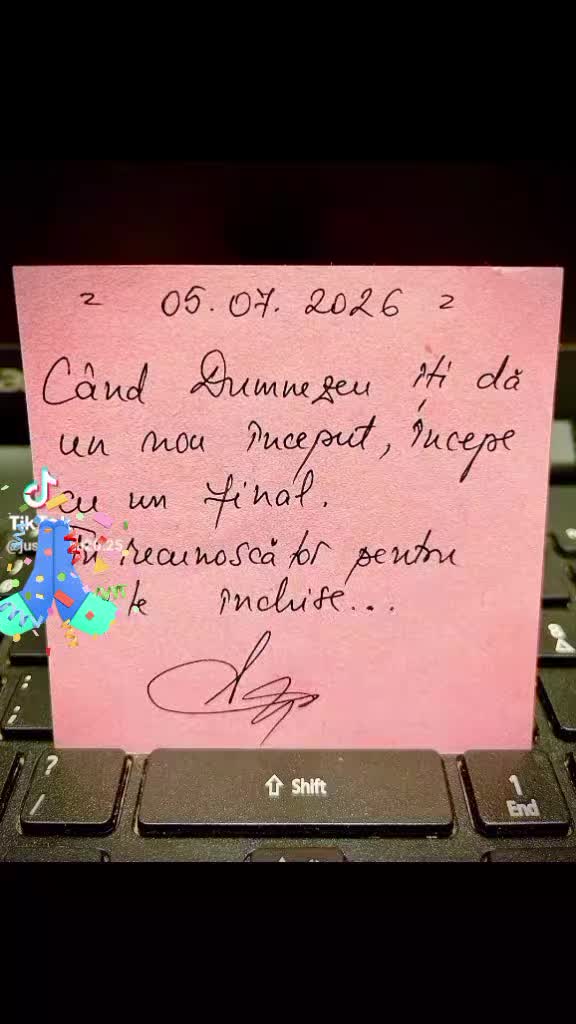 2 05.07.2026 2
Când Dumnezeu îți dă
un nou început, începe
cu un final.
Fii recunoscător pentru
închise...
TikTok
?
/
⇧ Shift
1
End